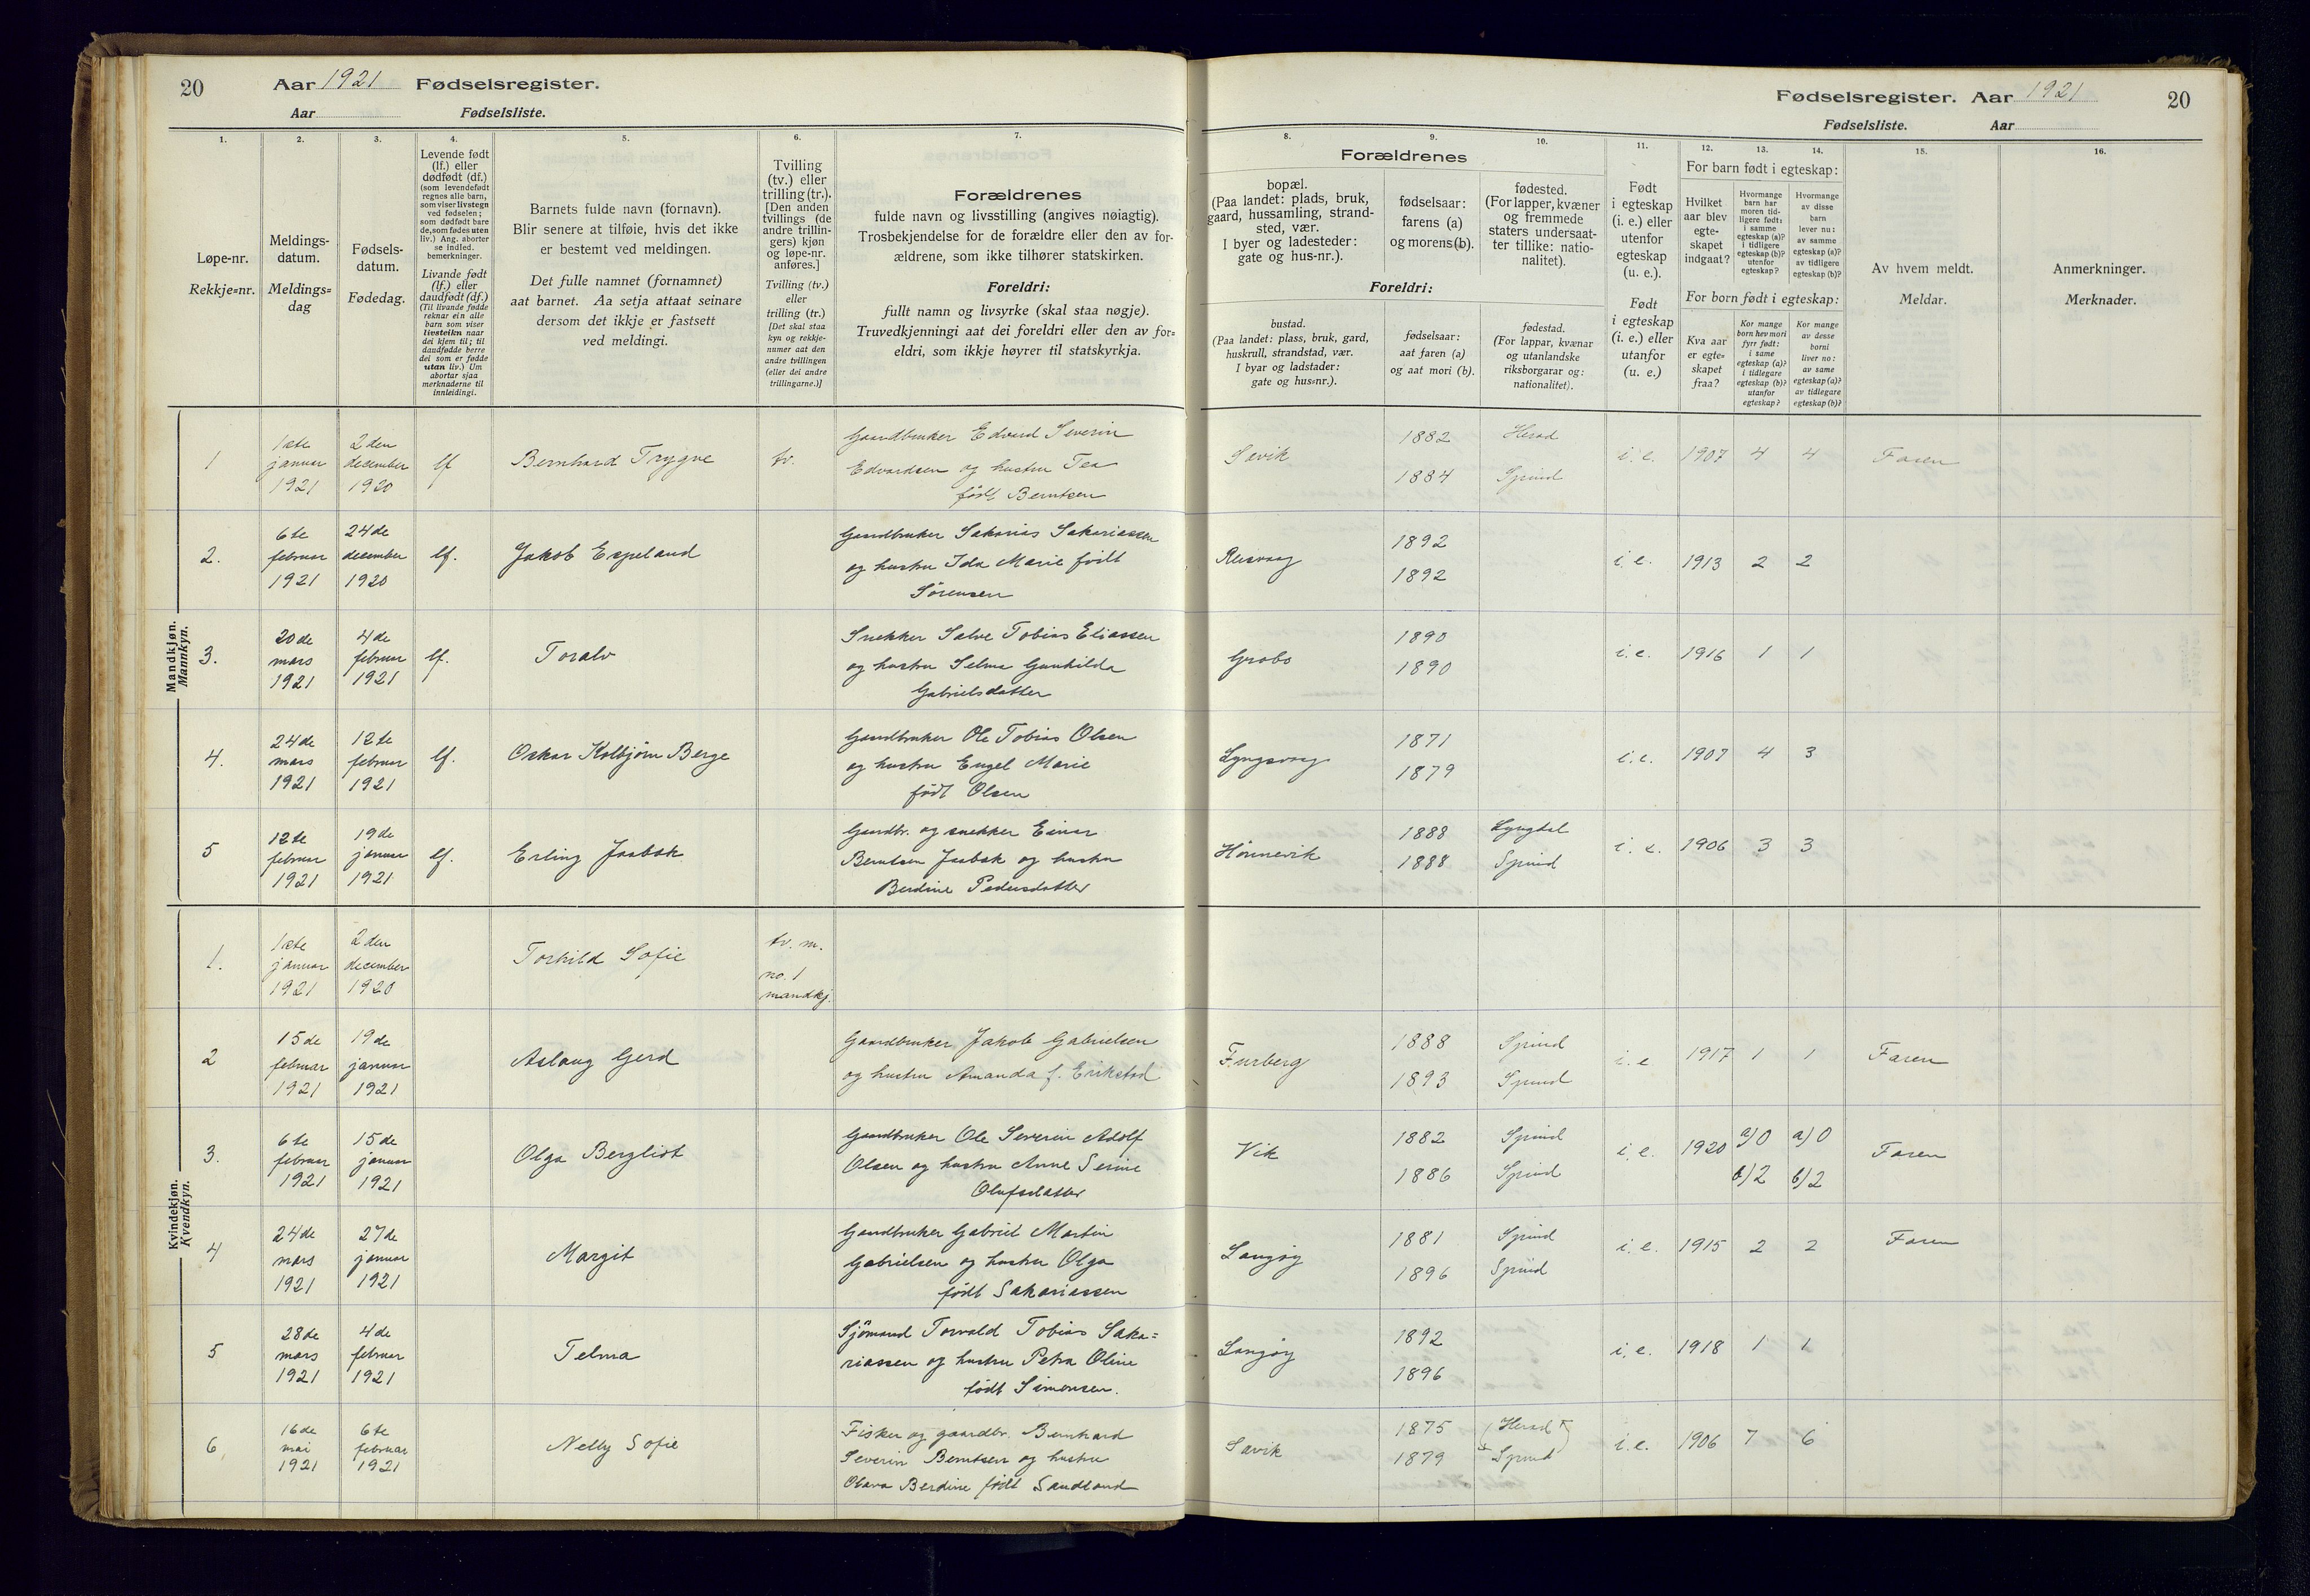 20
Aar 1921 Fødselsregister.
Aar Fødselsliste.
1.
2.
3.
4.
5.
6.
7.
Løpe-nr.
Rekkje=nr.
Meldings-
datum.
Meldings=
dag
Fødsels-
datum.
Fødedag.
Levende født
(lf.) eller
dødfødt (df.)
(som levendefødt
regnes alle barn,
som viser livstegn
ved fødselen;
som dødfødt bare
de, som fødes uten
liv.) Ang. aborter
se indled.
bemerkninger.
Livande født
(lf.) eller
daudfødt (df.)
(Til livande fødde
reknar ein alle
barn som viser
livsteikn naar
dei kjem til; til
daudfødde berre
dei som er fødde
utan liv.) Um
abortar sjaa
merknaderne til
innleidingi.
Barnets fulde navn (fornavn).
Blir senere at tilføie, hvis det ikke
er bestemt ved meldingen.
Det fulle namnet (fornamnet)
aat barnet. Aa setja attaat seinare
dersom det ikkje er fastsett
ved meldingi.
Tvilling
(tv.) eller
trilling (tr.).
[Den anden
tvillings (de
andre trillin-
gers) kjøn
og løpe-nr.
anføres.]
Tvilling (tv.)
eller
trilling (tr.)
[Det skal staa
kyn og rekkje-
numer aat den
andre tvillingen
(eller dei andre
trillingarne.)]
Forældrenes
fulde navn og livsstilling (angives nøiagtig).
Trosbekjendelse for de forældre eller den av for-
ældrene, som ikke tilhører statskirken.
Foreldri:
fullt namn og livsyrke (skal staa nøgje).
Truvedkjenningi aat dei foreldri eller den av for=
eldri, som ikkje høyrer til statskyrkja.
Mandkjøn.
Mannkyn.
1
1ste
januar
1921
2den
december
1920
lf
Bernhard Trygve
tv.
Gaardbruker Edvard Severin
Edvardsen og hustru Tea
født Berntsen
2.
6te
februar
1921
24de
december
1920
lf.
Jakob Espeland
Gaardbruker Sakarias Sakariassen
og hustru Ida Marie født
Sörensen
3.
20de
mars
1921
4de
februar
1921
lf.
Toralv
Snekker Salve Tobias Eliassen
og hustru Selma Gunhilda
Gabrielsdatter
4.
24de
mars
1921
12te
februar
1921
lf.
Oskar Kolbjörn Berge
Gaardbruker Ole Tobias Olsen
og hustru Engel Marie
født Olsen
5
12te
februar
1921
19de
januar
1921
lf.
Erling Jaabæk
Gaardbr. og snekker Einar
Berntsen Jaabæk og hustru
Berdine Pedersdatter
Kvindekjøn.
Kvendkyn.
1.
1ste
januar
1921
2den
december
1920
Torhild Sofie
tv. m.
no. 1
mandkj.
2
15de
februar
1921
19de
januar
1921
Aslaug Gerd
Gaardbruker Jakob Gabrielsen
og hustru Amanda f. Erikstad
3.
6te
februar
1921
15de
januar
1921
Olga Bergliot
Gaardbruker Ole Severin Adolf
Olsen og hustru Anne Serine
Olufsdatter
4
24de
mars
1921
27de
januar
1921
Margit
Gaardbruker Gabriel Martin
Gabrielsen og hustru Olga
født Sakariassen
5
28de
mars
1921
4de
februar
1921
Telma
Sjömand Torvald Tobias Saka=
riassen og hustru Petra Oline
født Simonsen.
6,
16de
mai
1921
6te
februar
1921
Nelly Sofie
Fisker og gaardbr. Bernhard
Severin Berntsen og hustru
Olava Berdine født Sandland
Fødselsregister. Aar 1921
20
Fødselsliste. Aar
8.
9.
10.
11.
12.
13.
14.
15.
16.
Forældrenes
bopæl.
(Paa landet: plads, bruk,
gaard, hussamling, strand-
sted, vær.
I byer og ladesteder:
gate og hus-nr.).
fødselsaar:
farens (a)
og morens (b).
fødested.
(For lapper, kvæner
og fremmede
staters undersaat-
ter tillike: natio-
nalitet).
Foreldri:
bustad.
(Paa landet: plass, bruk, gard,
huskrull, strandstad, vær.
I byar og ladstader:
gate og hus=nr.).
fødselsaar:
aat faren (a)
og aat mori (b).
fødestad.
(For lappar, kvænar
og utanlandske
riksborgarar og:
nationalitet).
Født
i egteskap
(i. e.) eller
utenfor
egteskap
(u. e.).
Født
i egteskap
(i. e.) eller
utanfor
(u. e.)
For barn født i egteskap:
Hvilket
aar blev
egte-
skapet
indgaat?
Hvormange
barn har
moren tid-
ligere født:
i samme
egteskap (a)?
i tidligere
egteskap (b)?
utenfor
egteskap?
Hvormange
av disse
barn
lever nu:
av samme
egteskap (a)?
av tidligere
egteskap (b)?
For born født i egteskap:
Kva aar
er egte=
skapet
fraa?
Kor mange
born hev mori
fyrr født:
i same
egteskap (a)?
i tidlegare
egteskap (b)?
utanfor
egteskap?
Kor mange
av desse
borni
liver no:
av same
egteskap (a)?
av tidlegare
egteskap (b)?
Av hvem meldt.
Meldar.
Anmerkninger.
Merknader.
Savik
1882
1884
Herad
Spind
i. e.
1907
4
4
Faren
Reisvaag
1892
1892
i. e.
1913
2
2
Grobo
1890
1890
i. e.
1916
1
1
Lyngsvaag
1871
1879
i. e.
1907
4
3
Hönnevik
1888
1888
Lyngdal
Spind
i. e.
1906
3
3
Furberg
1888
1893
Spind
Spind
i. e
1917
1
1
Faren
Vik
1882
1886
Spind
Spind
i. e.
1920
a) 0
b) 2
a) 0
b) 2
Faren
Langöy
1881
1896
Spind
Spind
i. e.
1915
2
2
Faren
Langöy
1892
1896
i. e.
1918
1
1
Savik
1875
1879
Herad
Spind
i. e.
1906
7
6